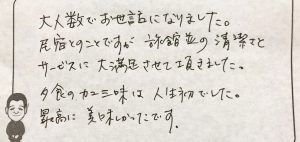 大人数でお世話になりました。
民宿とのことですが 旅館並の清潔さと
サービスに大満足させて頂きました。
夕食のカニ三昧は 人は初でした。
最高に美味しかったです。